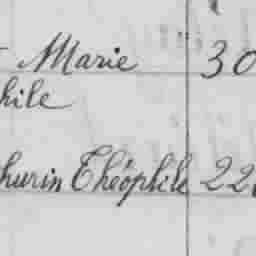 Marie 30
hile
hurin Théophile 22